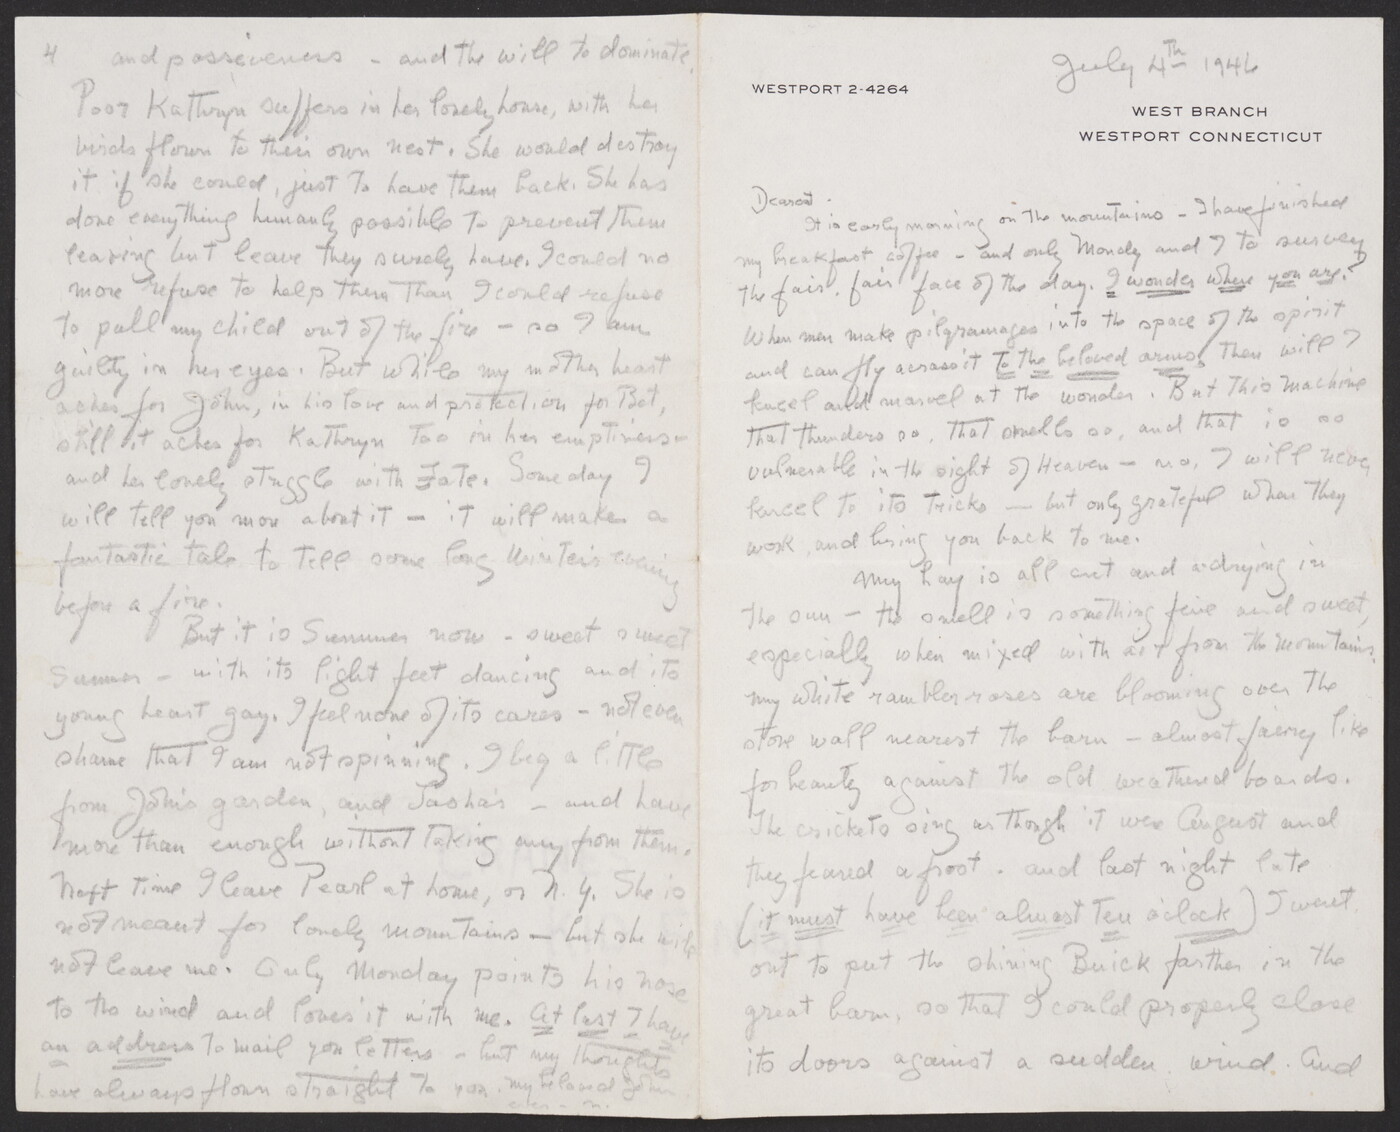 4 and possiveness - and the will to dominate.
Poor Kathryn suffers in her lonely house, with her
birds flown to their own nest. She would destroy
it if she could, just to have them back. She has
done everything humanly possible to prevent them
leaving but leave they surely have. I could no
more refuse to help them than I could refuse
to pull my child out of the fire - so I am
guilty in her eyes. But while my mother heart
aches for John, in his love and protection for Bet,
still it aches for Kathryn too in her emptiness -
and her lonely struggle with Fate. Some day I
will tell you more about it - it will make a
fantastic tale to tell some long Winter's evening
before a fire.
But it is Summer now - sweet sweet
Summer - with its light feet dancing and its
young heart gay. I feel none of its cares - not even
shame that I am not spinning. I beg a little
from John's garden, and Sasha's - and have
more than enough without taking any from them.
Next time I leave Pearl at home, or N.Y. She is
not meant for lonely mountains - but she will
not leave me. Only Monday points his nose
to the wind and loves it with me. At last I have
an address to mail you letters - but my thoughts
have always flown straight to you. my beloved John.
July 4th 1946
WESTPORT 2-4264
WEST BRANCH
WESTPORT CONNECTICUT
Dearest -
It is early morning on the mountains - I have finished
my breakfast coffee - and only Monday and I to survey
the fair, fair face of the day. I wonder where you are?
When men make pilgramages into the space of the spirit
and can fly across it to the beloved arms, then will I
kneel and marvel at the wonder. But this machine
that thunders so, that smells so, and that is so
vulnerable in the sight of Heaven - no, I will never
kneel to its tricks - but only grateful when they
work, and bring you back to me.
My hay is all cut and a-drying in
the sun - the smell is something fine and sweet,
especially when mixed with air from the mountains.
My white rambler roses are blooming over the
stone wall nearest the barn - almost faerey like
for beauty against the old weathered boards.
The crickets sing as though it were August and
they feared a frost. and last night late
(it must have been almost Ten o'clock) I went
out to put the shining Buick farther in the
great barn, so that I could properly close
its doors against a sudden wind. And